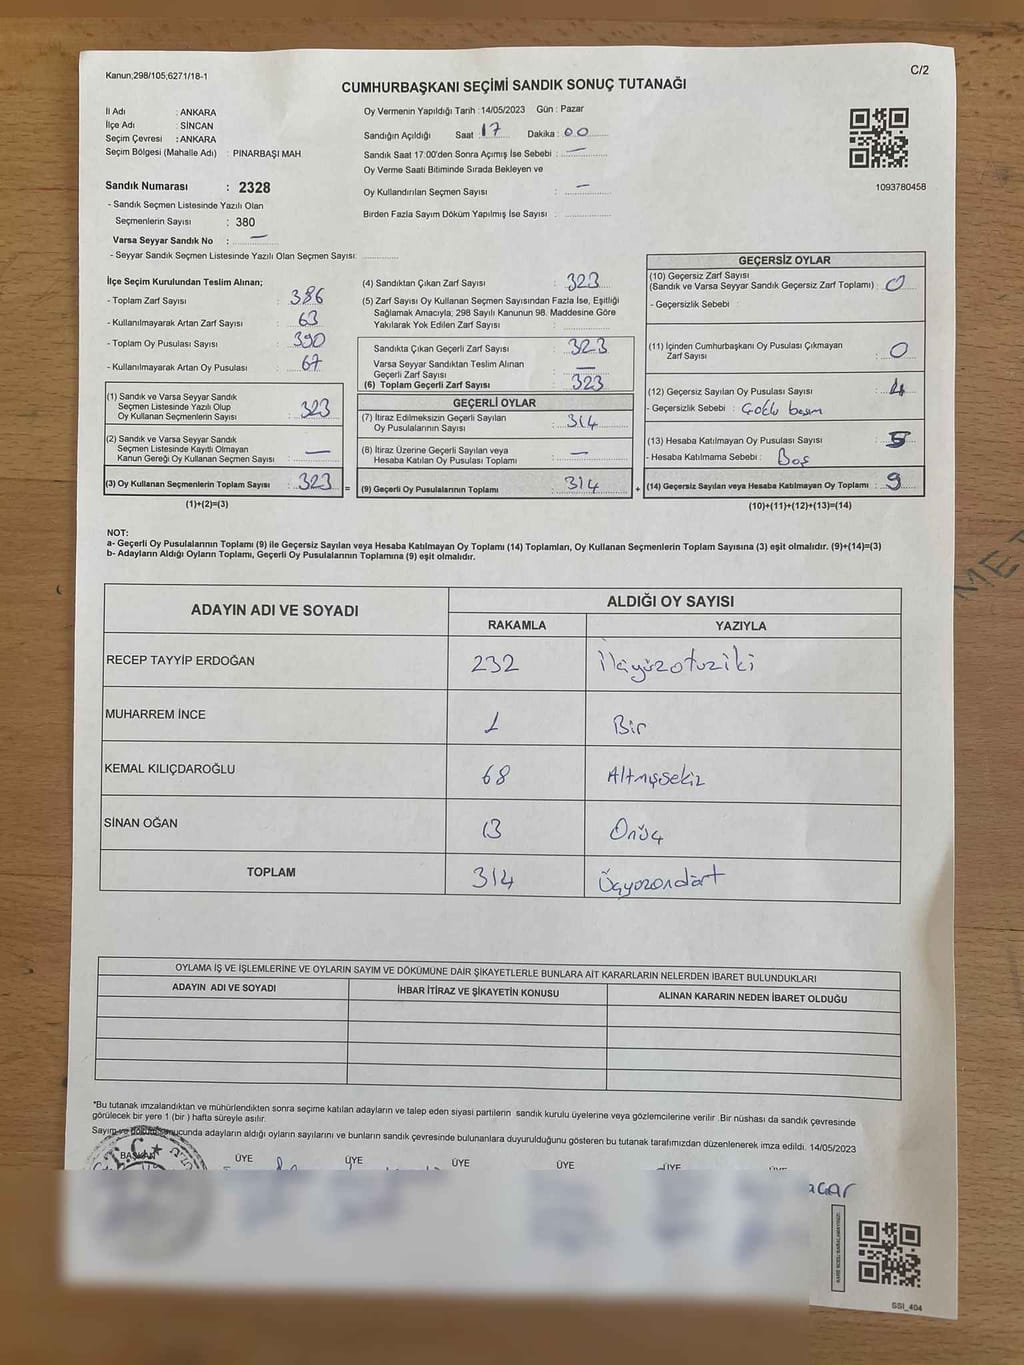 Kanun;298/105;6271/18-1
C/2
CUMHURBAŞKANI SEÇİMİ SANDIK SONUÇ TUTANAĞI
İl Adı : ANKARA
İlçe Adı : SİNCAN
Seçim Çevresi : ANKARA
Seçim Bölgesi (Mahalle Adı) : PINARBAŞI MAH
Sandık Numarası : 2328
- Sandık Seçmen Listesinde Yazılı Olan
Seçmenlerin Sayısı : 380
Varsa Seyyar Sandık No : —
- Seyyar Sandık Seçmen Listesinde Yazılı Olan Seçmen Sayısı:
Oy Vermenin Yapıldığı Tarih : 14/05/2023 Gün : Pazar
Sandığın Açıldığı Saat : 17 Dakika : 00
Sandık Saat 17:00'den Sonra Açılmış İse Sebebi : —
Oy Verme Saati Bitiminde Sırada Bekleyen ve
Oy Kullandırılan Seçmen Sayısı : —
Birden Fazla Sayım Döküm Yapılmış İse Sayısı :
1093780458
İlçe Seçim Kurulundan Teslim Alınan;
- Toplam Zarf Sayısı : 386
- Kullanılmayarak Artan Zarf Sayısı : 63
- Toplam Oy Pusulası Sayısı : 390
- Kullanılmayarak Artan Oy Pusulası : 67
(1) Sandık ve Varsa Seyyar Sandık
Seçmen Listesinde Yazılı Olup
Oy Kullanan Seçmenlerin Sayısı : 323
(2) Sandık ve Varsa Seyyar Sandık
Seçmen Listesinde Kayıtlı Olmayan
Kanun Gereği Oy Kullanan Seçmen Sayısı : —
(3) Oy Kullanan Seçmenlerin Toplam Sayısı : 323
(1)+(2)=(3)
(4) Sandıktan Çıkan Zarf Sayısı : 323
(5) Zarf Sayısı Oy Kullanan Seçmen Sayısından Fazla İse, Eşitliği
Sağlamak Amacıyla; 298 Sayılı Kanunun 98. Maddesine Göre
Yakılarak Yok Edilen Zarf Sayısı :
Sandıkta Çıkan Geçerli Zarf Sayısı : 323
Varsa Seyyar Sandıktan Teslim Alınan
Geçerli Zarf Sayısı : —
(6) Toplam Geçerli Zarf Sayısı : 323
GEÇERLİ OYLAR
(7) İtiraz Edilmeksizin Geçerli Sayılan
Oy Pusulalarının Sayısı : 314
(8) İtiraz Üzerine Geçerli Sayılan veya
Hesaba Katılan Oy Pusulası Toplamı : —
= (9) Geçerli Oy Pusulalarının Toplamı : 314 +
GEÇERSİZ OYLAR
(10) Geçersiz Zarf Sayısı
(Sandık ve Varsa Seyyar Sandık Geçersiz Zarf Toplamı) : 0
- Geçersizlik Sebebi :
(11) İçinden Cumhurbaşkanı Oy Pusulası Çıkmayan
Zarf Sayısı : 0
(12) Geçersiz Sayılan Oy Pusulası Sayısı : 4
- Geçersizlik Sebebi : Çoklu basım
(13) Hesaba Katılmayan Oy Pusulası Sayısı : 5
- Hesaba Katılmama Sebebi : Boş
(14) Geçersiz Sayılan veya Hesaba Katılmayan Oy Toplamı : 9
(10)+(11)+(12)+(13)=(14)
NOT:
a- Geçerli Oy Pusulalarının Toplamı (9) ile Geçersiz Sayılan veya Hesaba Katılmayan Oy Toplamı (14) Toplamları, Oy Kullanan Seçmenlerin Toplam Sayısına (3) eşit olmalıdır. (9)+(14)=(3)
b- Adayların Aldığı Oyların Toplamı, Geçerli Oy Pusulalarının Toplamına (9) eşit olmalıdır.
ADAYIN ADI VE SOYADI
ALDIĞI OY SAYISI
RAKAMLA YAZIYLA
RECEP TAYYİP ERDOĞAN 232 İkiyüzotuziki
MUHARREM İNCE 1 Bir
KEMAL KILIÇDAROĞLU 68 Altmışsekiz
SİNAN OĞAN 13 Onüç
TOPLAM 314 Üçyüzondört
OYLAMA İŞ VE İŞLEMLERİNE VE OYLARIN SAYIM VE DÖKÜMÜNE DAİR ŞİKAYETLERLE BUNLARA AİT KARARLARIN NELERDEN İBARET BULUNDUKLARI
ADAYIN ADI VE SOYADI İHBAR İTİRAZ VE ŞİKAYETİN KONUSU ALINAN KARARIN NEDEN İBARET OLDUĞU
*Bu tutanak imzalandıktan ve mühürlendikten sonra seçime katılan adayların ve talep eden siyasi partilerin sandık kurulu üyelerine veya gözlemcilerine verilir .Bir nüshası da sandık çevresinde
görülecek bir yere 1 (bir ) hafta süreyle asılır.
Sayım ve döküm sonucunda adayların aldığı oyların sayılarını ve bunların sandık çevresinde bulunanlara duyurulduğunu gösteren bu tutanak tarafımızdan düzenlenerek imza edildi. 14/05/2023
BAŞKAN ÜYE ÜYE ÜYE ÜYE ÜYE
SSI_404